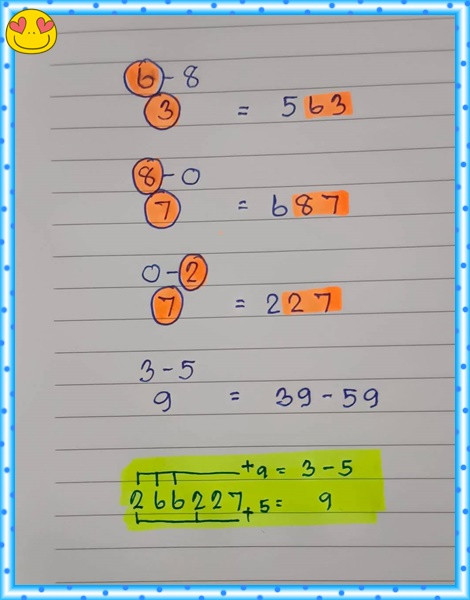 6-8
3 = 563
8-0
7 = 687
0-2
7 = 227
3-5
9 = 39-59
+9 = 3-5
266227+5= 9